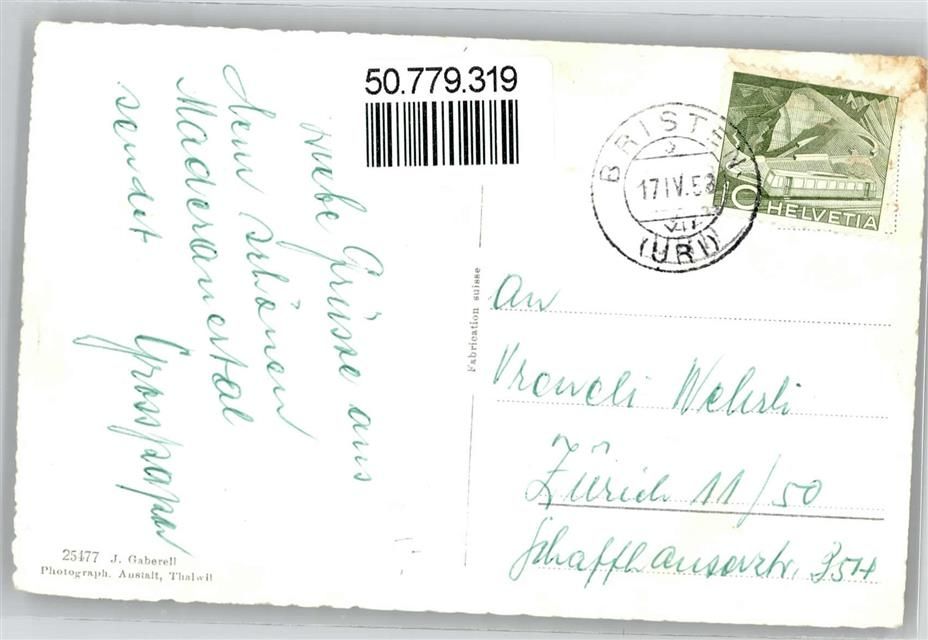 50.779.319
Liebe Grüsse aus
dem schönen
Maderanertal
sendet Grosspapa
25477 J. Gaberell
Photograph. Anstalt, Thalwil
Fabrication suisse
BRISTEN
17 IV. 58
(URI)
10 HELVETIA
An
Vroneli Wehrli
Zürich 11/50
Schaffhauserstr. 354